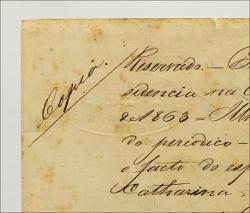 Copia.
Reservado. –
sidencia na
de 1863 –
do periodico –
o facto do es
Catharina